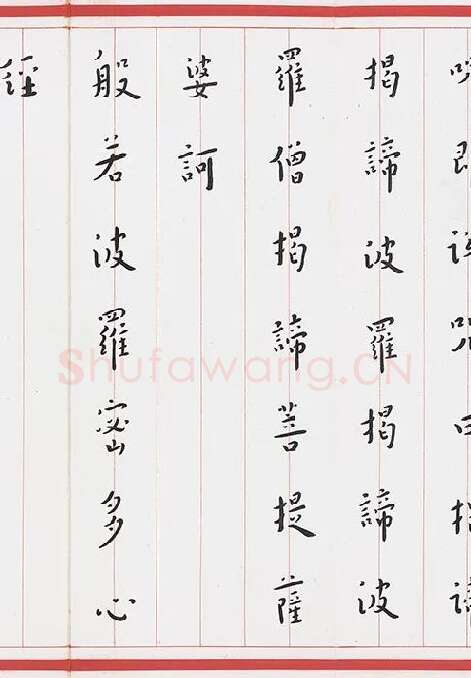 呪即說咒曰揭諦
揭諦波羅揭諦波
羅僧揭諦菩提薩
婆訶
般若波羅密多心
經
Shufawang.CN